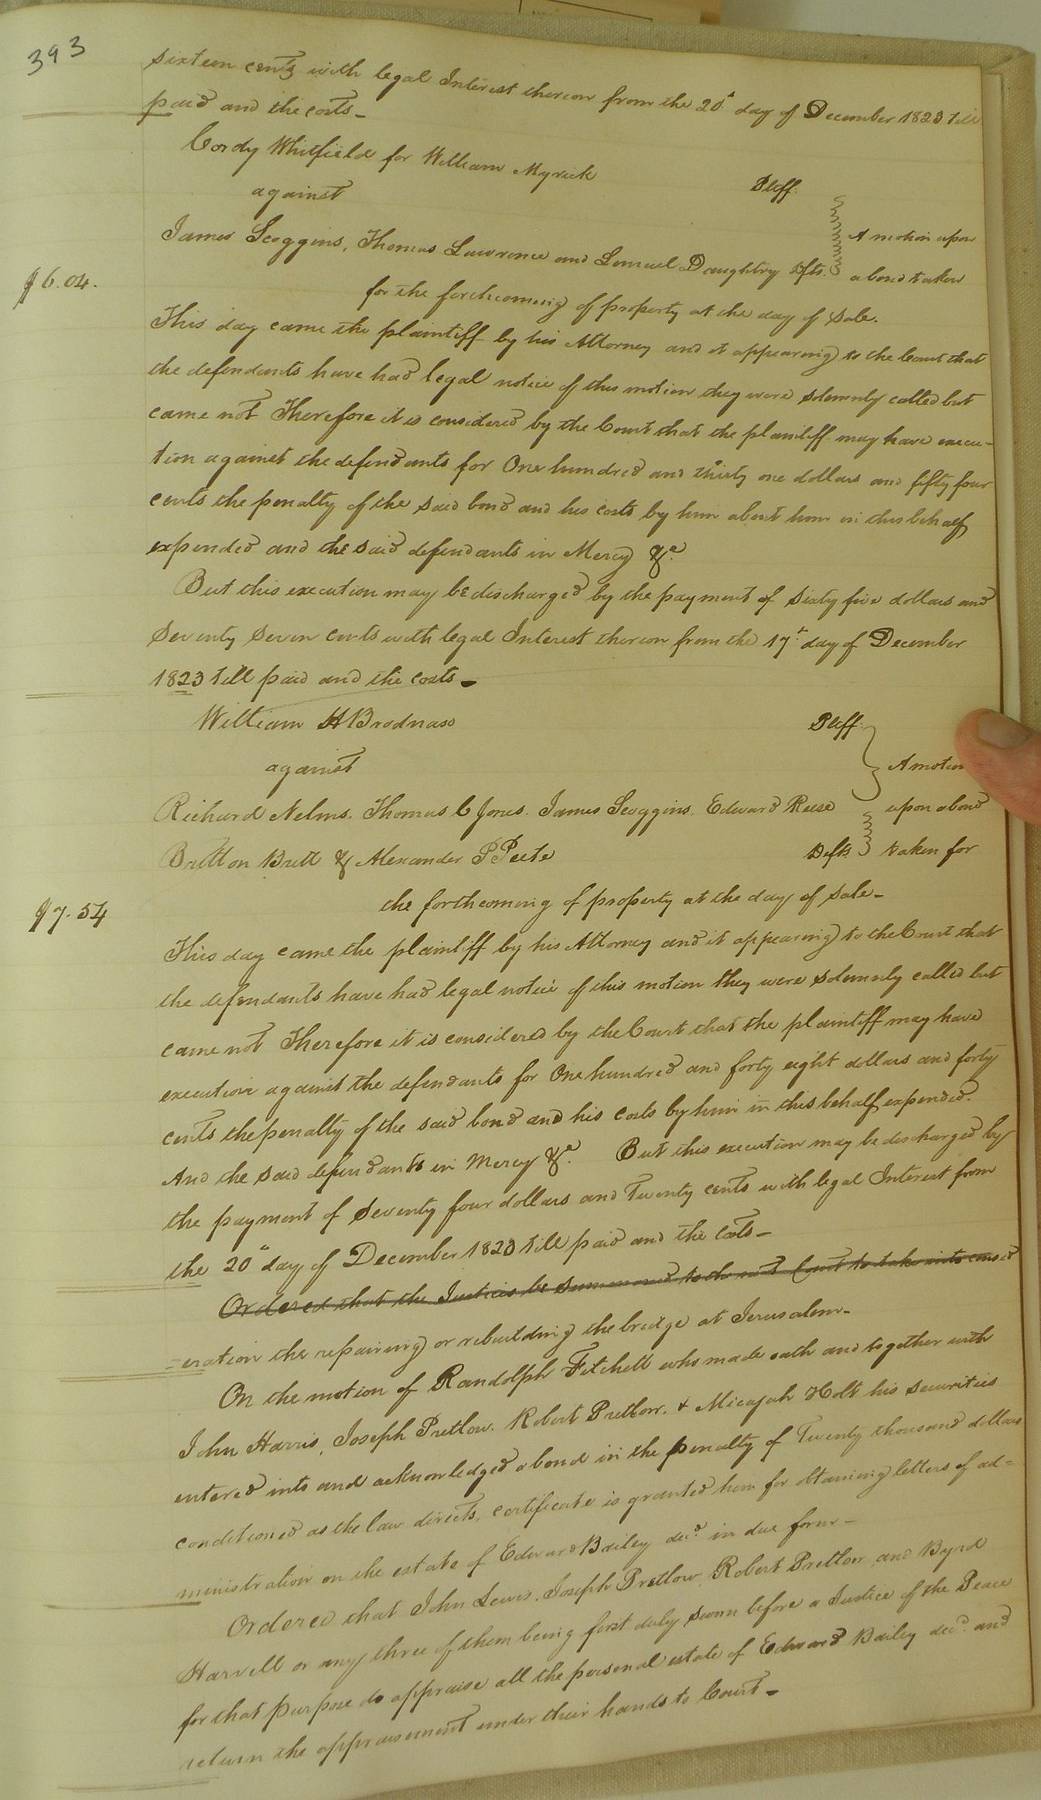 393
sixteen cents with legal Interest thereon from the 20t day of December 1823 till
paid and the costs_
Cordy Whitfield for William Myrick Pltff.
against
James Scoggins, Thomas Lawrence and Lemuel Daughtry Dfts. A motion upon
$6.04. a bond taken
for the forthcoming of property at the day of sale.
This day came the plaintiff by his Attorney and it appearing to the Court that
the defendants have had legal notice of this motion they were solemnly called but
came not Therefore it is considered by the Court that the plaintiff may have execu-
tion against the defendants for One hundred and thirty one dollars and fifty four
cents the penalty of the said bond and his costs by him about him in this behalf
expended and the said defendants in Mercy &c.
But this execution may be discharged by the payment of Sixty five dollars and
Seventy Seven cents with legal Interest thereon from the 17t day of December
1823 till paid and the costs_
William H Brodnax Pltff.
against A motion
Richard Nelms. Thomas C Jones. James Scoggins. Edward Reese upon a bond
Britton Britt & Alexander P Peete Defts taken for
the forthcoming of property at the day of sale_
$7.54
This day came the plaintiff by his Attorney and it appearing to the Court that
the defendants have had legal notice of this motion they were solemnly called but
came not Therefore it is considered by the Court that the plaintiff may have
execution against the defendants for One hundred and forty eight dollars and forty
cents the penalty of the said bond and his costs by him in this behalf expended.
And the said defendants in Mercy &c. But this execution may be discharged by
the payment of Seventy four dollars and Twenty cents with legal Interest from
the 20" day of December 1823 till paid and the costs_
Ordered that the Justices be summoned to the next Court to take into consid
=eration the repairing or rebuilding the bridge at Jerusalem_
On the motion of Randolph Fitchett who made oath and together with
John Harris, Joseph Pretlow. Robert Pretlow. & Micajah Holt his securities
entered into and acknowledged a bond in the penalty of Twenty thousand dollars
conditioned as the law directs, certificate is granted him for obtaining letters of ad=
ministration on the estate of Edward Bailey decd. in due form_
Ordered that John Lewis, Joseph Pretlow, Robert Pretlow and Byrd
Harvell or any three of them being first duly sworn before a Justice of the Peace
for that purpose do appraise all the personal estate of Edward Bailey decd. and
return the appraisement under their hands to Court_